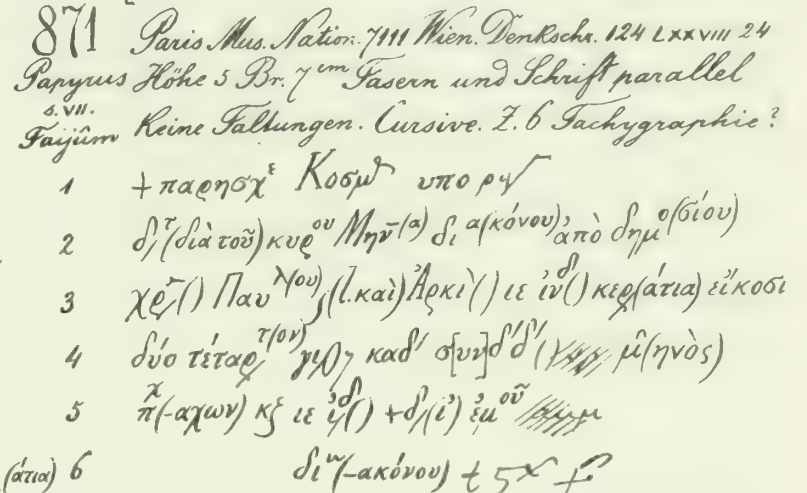 871 Paris Mus. Nation. 7111 Wien. Denkschr. 124 LXXVIII 24
Papyrus Höhe 5 Br. 7 cm Fasern und Schrift parallel
s. VII.
Faijûm Keine Faltungen. Cursive. Z. 6 Tachygraphie?
1 + παρησχε Κοσμ υπο
2 δ/τ(διὰ τοῦ) κυρου Μην(α) δι α(κόνου) ἀπὸ δημο(σίου)
3 χρ() Παυλ(ου) (l. καὶ) Ἀρκὶ() ιε ἰνδ() κερ(άτια) εἴκοσι
4 δύο τέταρτ(ον) καδ' σ[υν] δ'δ' μ(ηνὸς)
5 παχ(-αχων) κξ ιε ἰδ() + δ/(ι') ἐμοῦ
(άτια) 6 δι(-ακόνου)